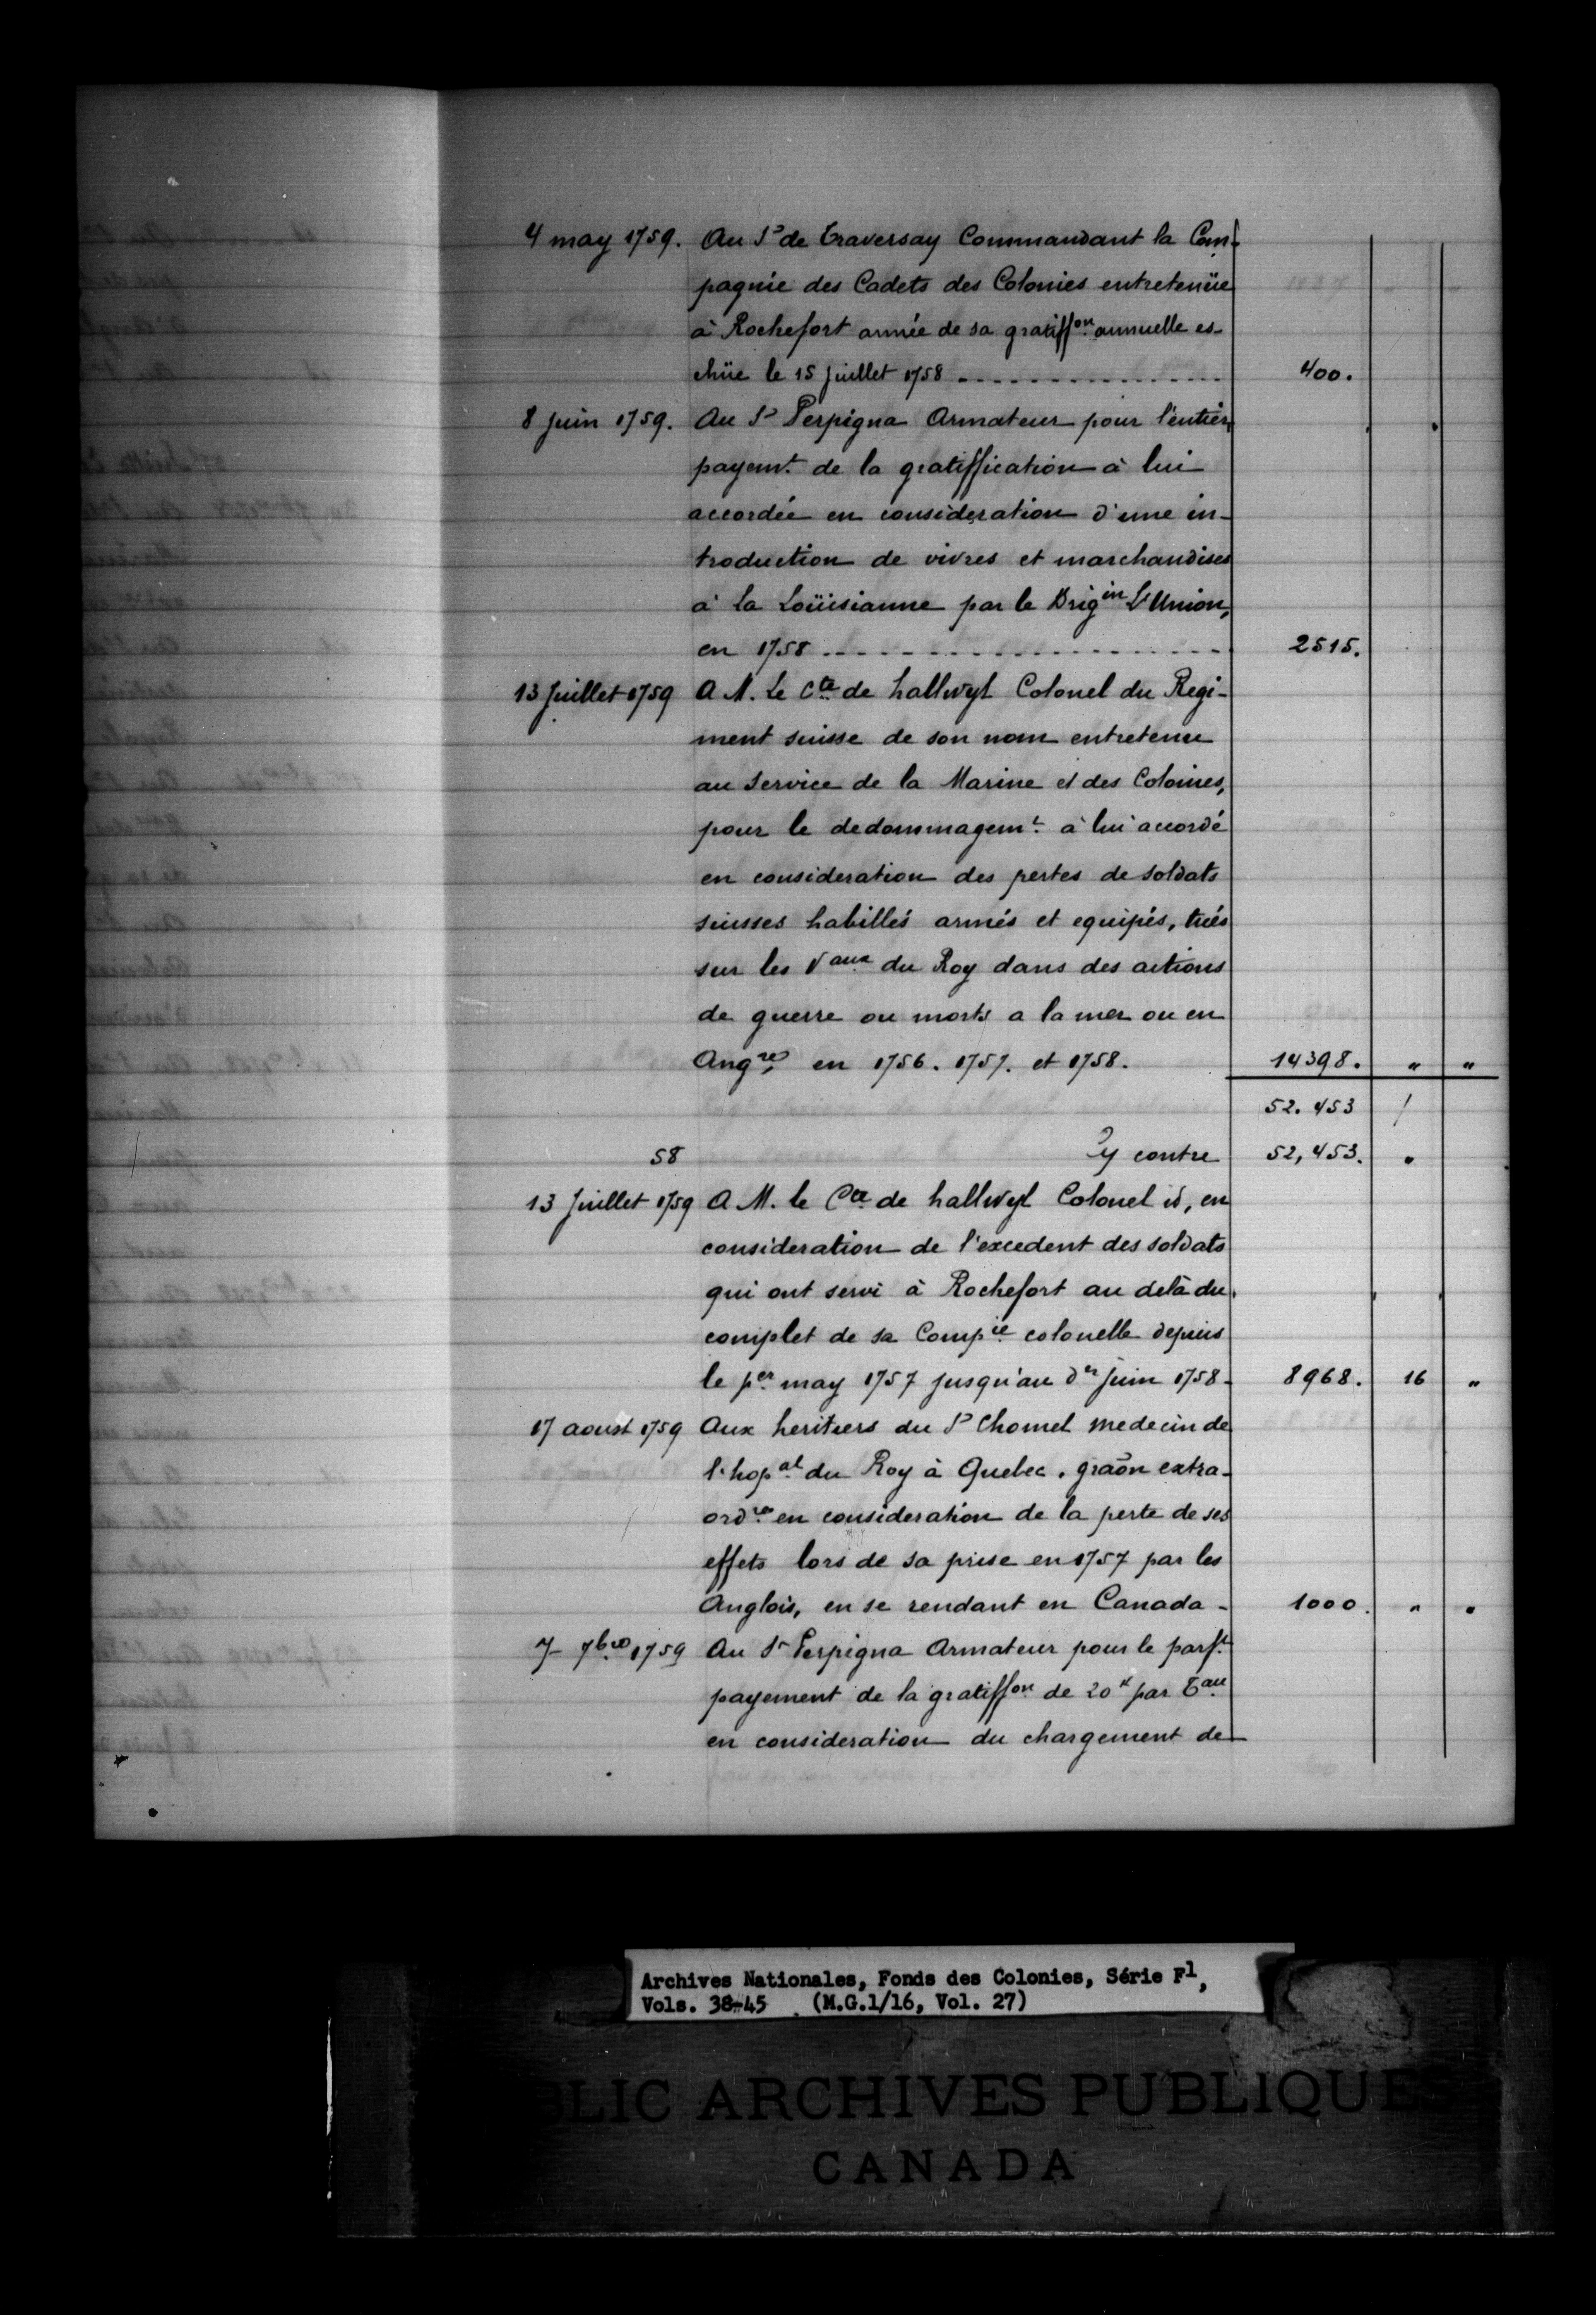 4 may 1759. Au Sr de Traversay Commandant la Com-
pagnie des Cadets des Colonies entretenüe
à Rochefort année de sa gratiffon. annuelle es-
chüe le 15 Juillet 1758 ................ 400.
8 Juin 1759. Au Sr Perpigna Armateur pour l'entier
payemt. de la gratiffication à lui
accordée en consideration d'une in-
troduction de vivres et marchandises
à la Loüisianne par le Brigin L'Union,
en 1758 .................... 2515.
13 Juillet 1759 A M. Le Cte de hallwyl Colonel du Regi-
ment suisse de son nom entretenu
au service de la Marine et des Colonies,
pour le dedommagemt. à lui accordé
en consideration des pertes de soldats
suisses habillés armés et equipés, tués
sur les Vaux du Roy dans des actions
de guerre ou morts a la mer ou en
Angre, en 1756. 1757. et 1758. 14398. " "
52.453 /
58 Cy contre 52,453. "
13 Juillet 1759 A M. le Cte de hallwyl Colonel id, en
consideration de l'excedent des soldats
qui ont servi à Rochefort au delà du
complet de sa Compie colonelle depuis
le per. may 1757 jusqu'au der Juin 1758- 8968. 16 "
17 aoust 1759 Aux heritiers du Sr Chomel medecin de
l'hopal. du Roy à Quebec. graõn extra-
ordre. en consideration de la perte de ses
effets lors de sa prise en 1757 par les
Anglois, en se rendant en Canada - 1000. " "
7 7bre 1759 Au Sr Perpigna Armateur pour le parft.
payement de la gratiffon. de 20# par Eau
en consideration du chargement de
Archives Nationales, Fonds des Colonies, Série F1,
Vols. 38-45 (M.G.1/16, Vol. 27)
BLIC ARCHIVES PUBLIQUES
CANADA